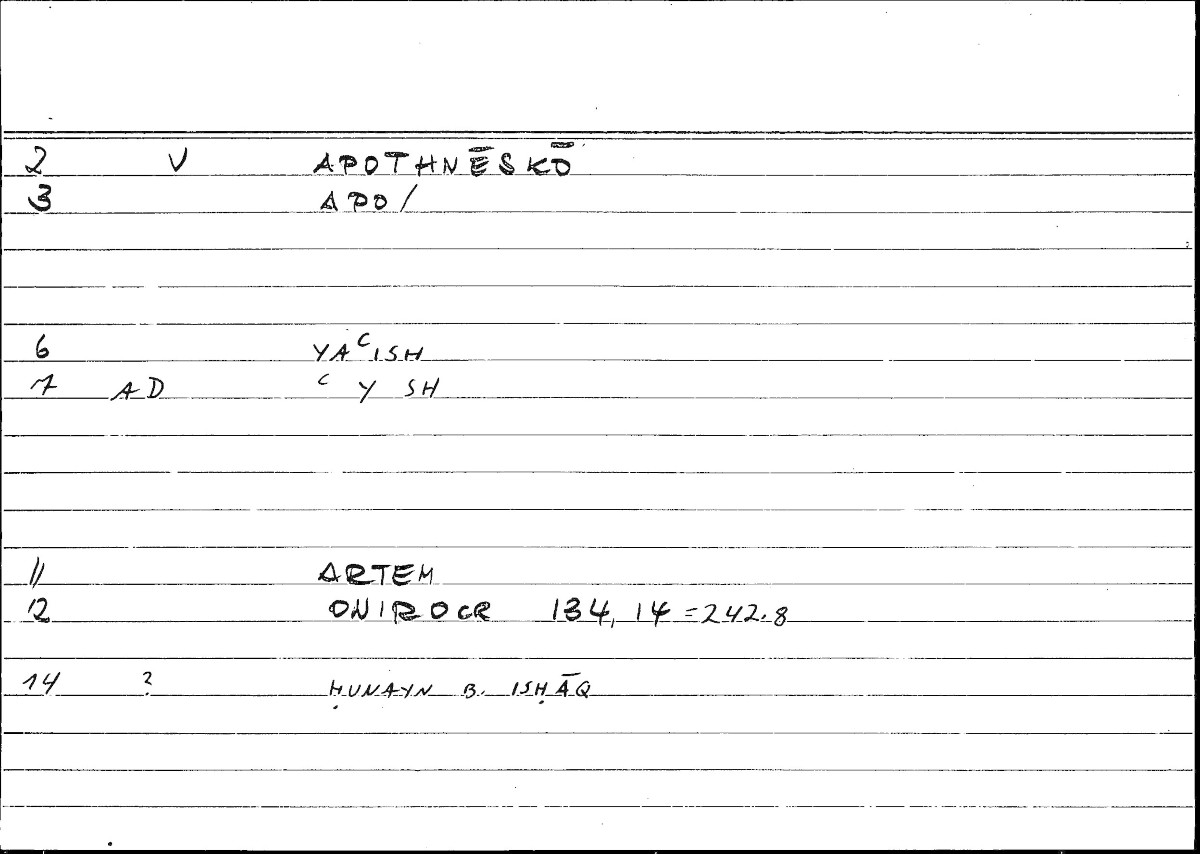 2 V APOTHNĒSKŌ
3 APO/
6 YAʿISH
7 AD ʿ Y SH
11 ARTEM
12 ONIROCR 134, 14 = 242.8
14 ? ḤUNAYN B. ISḤĀQ